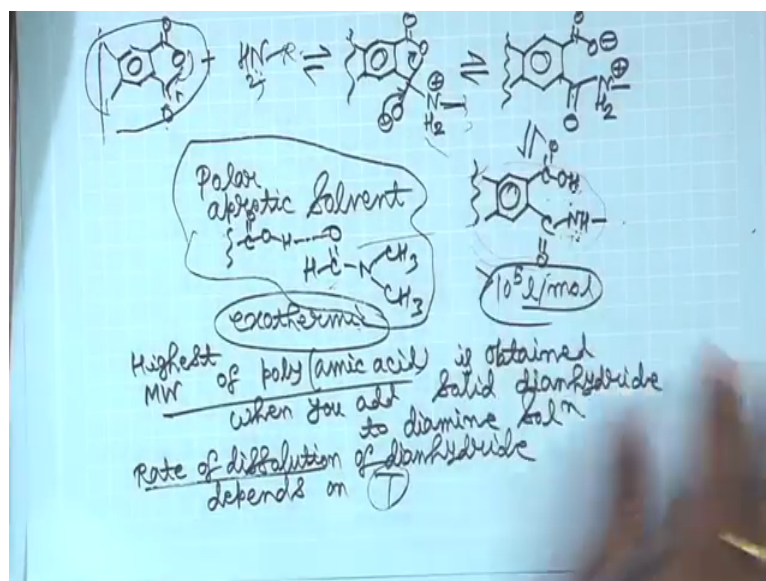 + H2N-R ⇌ ⇌
Polar
aprotic Solvent
exothermic
10⁵ l/mol
Highest of poly(amic acid) is obtained
MW when you add solid dianhydride
to diamine Solⁿ
Rate of dissolution of dianhydride
depends on T